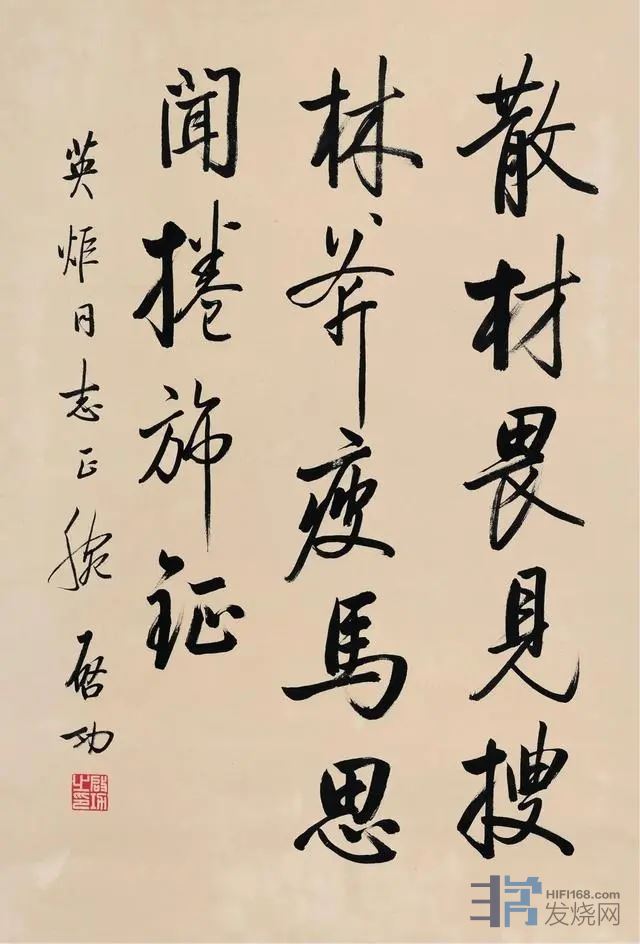 散材畏見搜
林斧疲馬思
聞捲旆鉦
英炬同志正腕 啓功
啟功之印
HIFI168.com
发烧网